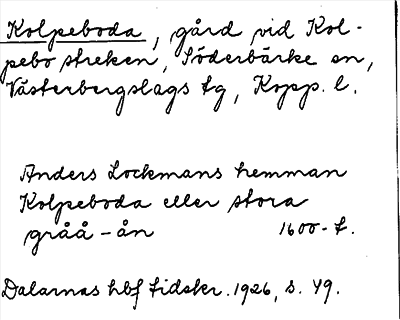 Kolpeboda, gård vid Kol-
pebo streken, Söderbärke sn,
Västerbergslags tg, Kopp. l.
Anders Lockmans hemman
Kolpeboda eller stora
gråå-ån 1600-t.
Dalarnas hbf tidskr. 1926, s. 49.